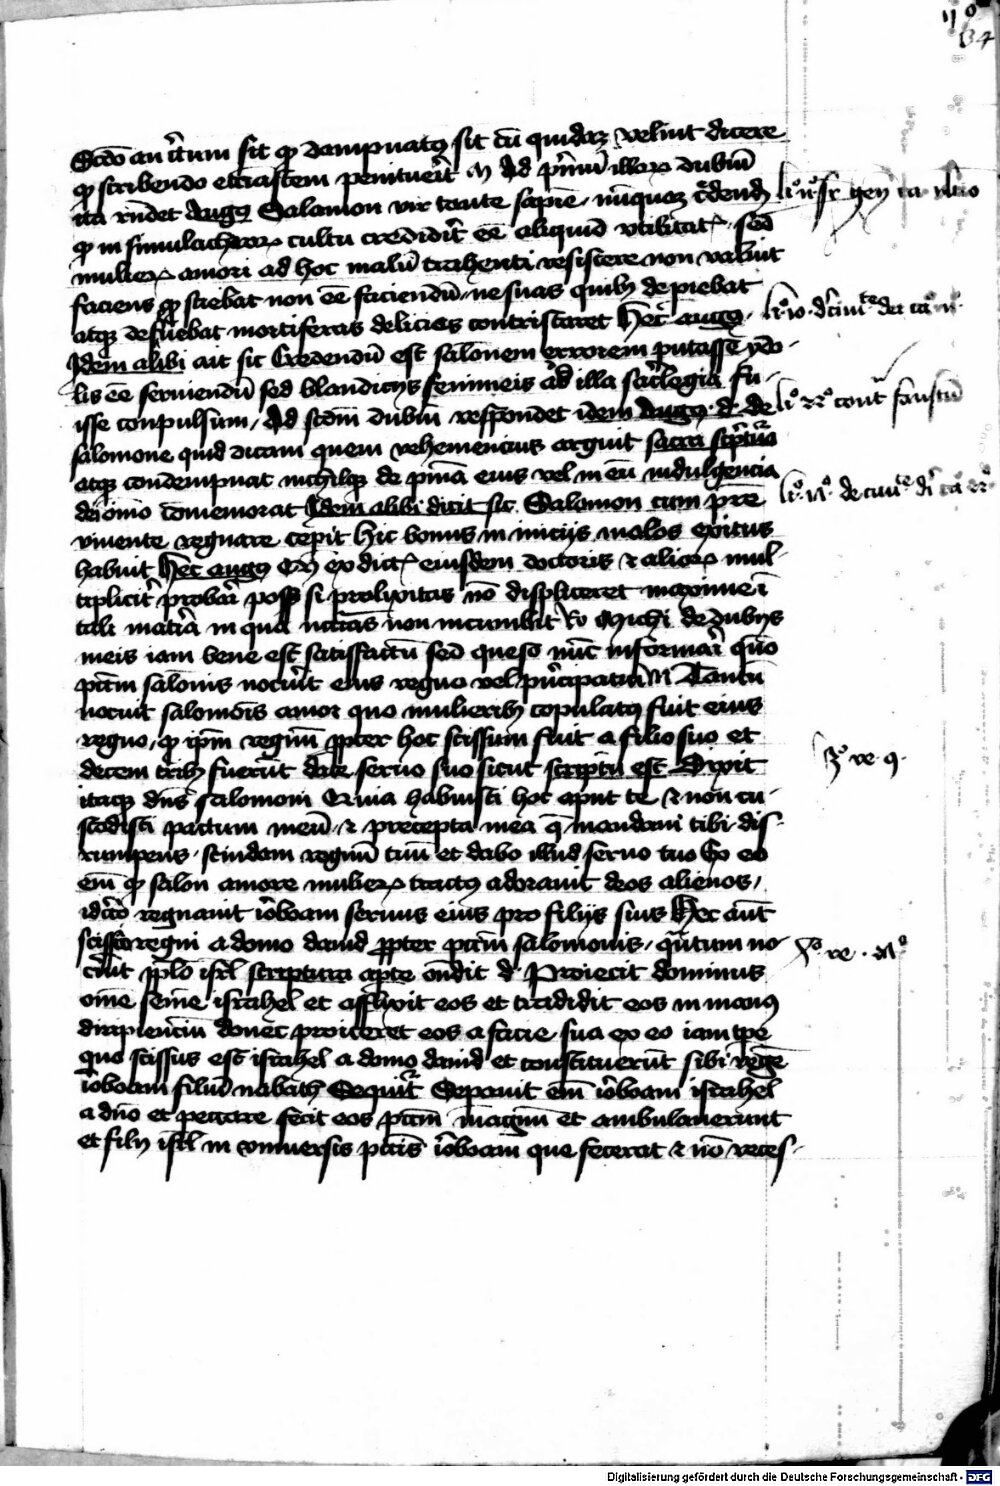 110
134
Scdo an itum sit qͥ dampnatꝰ sit cū quidaꝫ velint dicere
qͥ scribendo ecciasten penituerit M Ad pͥmū illoꝝ dubiū
ita rñdet Augꝰ Salamon vir tante sapiē · nūquaꝫ cͥdendū
li° ii° sr gen̄
qͥ in simulachroꝝ cultu credidit eē aliquid vtilitatꝭ · sed
mulieꝝ amori ad hoc malū trahenti resistere non valuit
faciens qͥ sciebat non eē faciendū · ne suas quibꝰ depiebat
atqꝫ defluebat mortiferas delicias contristaret Hec augꝰ ·
li° 10 · d' ciuite dei ca°
Idem alibi ait sic Credendū est salonem errorem putasse ydo
lis eē seruiendū sed blandicijs femineis ad illa sac̄legia fu-
isse conpulsum / Ad scdm dubiū respondet idem Augꝰ · d · de
li° 22° cont̄ faustū
salomone quid dicam quem vehemencius arguit sacra scptura
atqꝫ condempnat nichilqꝫ de pnīa eius vel in eū indulgencia
dei omīo comemorat Idem alibi dicit sic · Salomon cum prē
de ciuite di ca°
viuente regnare cepit Hic bonus in inicijs malos exitus
habuit Hec augꝰ Ex dictꝭ eiusdem doctoris ⁊ alioꝝ mul-
tiplicitͥ probari poss̄ si prolixitas nō displiceret maxime ī
tali matīa in qua necitas non incumbit Ro Michi de dubijs
meis iam bene est satisfactū sed queso nūc informari quō
pctm salonis nocuit eius regno vel pͥncipatui M Tantū
nocuit salomōis amor quo mulieribꝰ copulatꝰ fuit eius
regno · qͥ ipm regnū ꝓpter hoc scissum fuit a filio suo et
decem tribꝰ fuerūt date seruo suo sicut scriptū est Dixit
3° re · 9 ·
itaqꝫ dn̄s salomoni Quia habuisti hoc aput te ⁊ non cu-
stodisti pactum meū · ⁊ precepta mea q̄ mandaui tibi · dis-
rumpens · scindam regnū tuū et dabo illud seruo tuo Eo eō
em̄ qͥ salon amore mulieꝝ tractus adorauit deos alienos /
idcͥo regnauit ieͥboam seruus eius pro filijs suis Hec aut̄
scissio regni a domo dauid ꝓpter pctm salomonis · qͣntum no-
cuit pplo isrl scriptura apte ondit d · Proiecit dominus
re ·
omē semē israhel et afflixit eos et tradidit eos in manꝰ
diripienciū donec proiceret eos a facie · sua ex eo iam tpe
quo scissus est israhel a domo dauid et constituerūt sibi regē
ieͥboam filiū nabath Sequitͥ Separuit em̄ ieͥboam israhel
a dn̄o et peccare fecit eos pctm magnū et ambulauerunt
et filij isrl in vniuersis pctis ieͥboam que fecerat ⁊ nō reces-
Digitalisierung gefördert durch die Deutsche Forschungsgemeinschaft - DFG